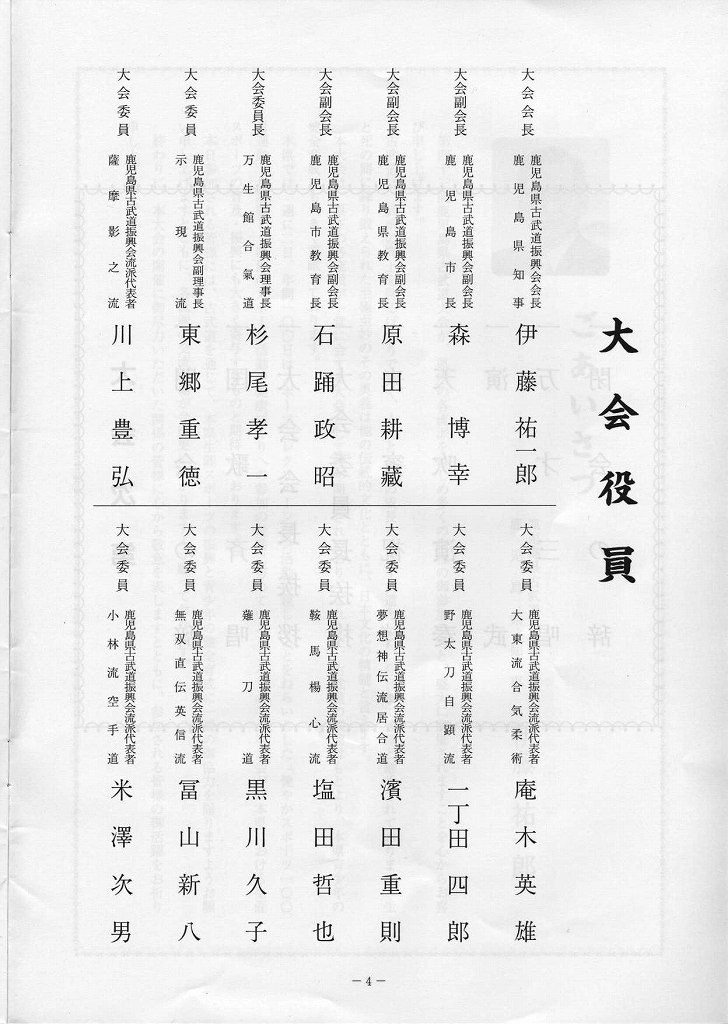 大会役員
大会会長
鹿児島県古武道振興会会長
鹿児島県知事
伊藤祐一郎
大会副会長
鹿児島県古武道振興会副会長
鹿児島市長
森博幸
大会副会長
鹿児島県古武道振興会副会長
鹿児島県教育長
原田耕藏
大会副会長
鹿児島県古武道振興会副会長
鹿児島市教育長
石踊政昭
大会委員長
鹿児島県古武道振興会理事長
万生館合氣道
杉尾孝一
大会委員
鹿児島県古武道振興会副理事長
示現流
東郷重徳
大会委員
鹿児島県古武道振興会流派代表者
薩摩影之流
川上豊弘
大会委員
鹿児島県古武道振興会流派代表者
大東流合気柔術
庵木英雄
大会委員
鹿児島県古武道振興会流派代表者
野太刀自顕流
一丁田四郎
大会委員
鹿児島県古武道振興会流派代表者
夢想神伝流居合道
濱田重則
大会委員
鹿児島県古武道振興会流派代表者
鞍馬楊心流
塩田哲也
大会委員
鹿児島県古武道振興会流派代表者
薙刀道
黒川久子
大会委員
鹿児島県古武道振興会流派代表者
無双直伝英信流
冨山新八
大会委員
鹿児島県古武道振興会流派代表者
小林流空手道
米澤次男
－4－